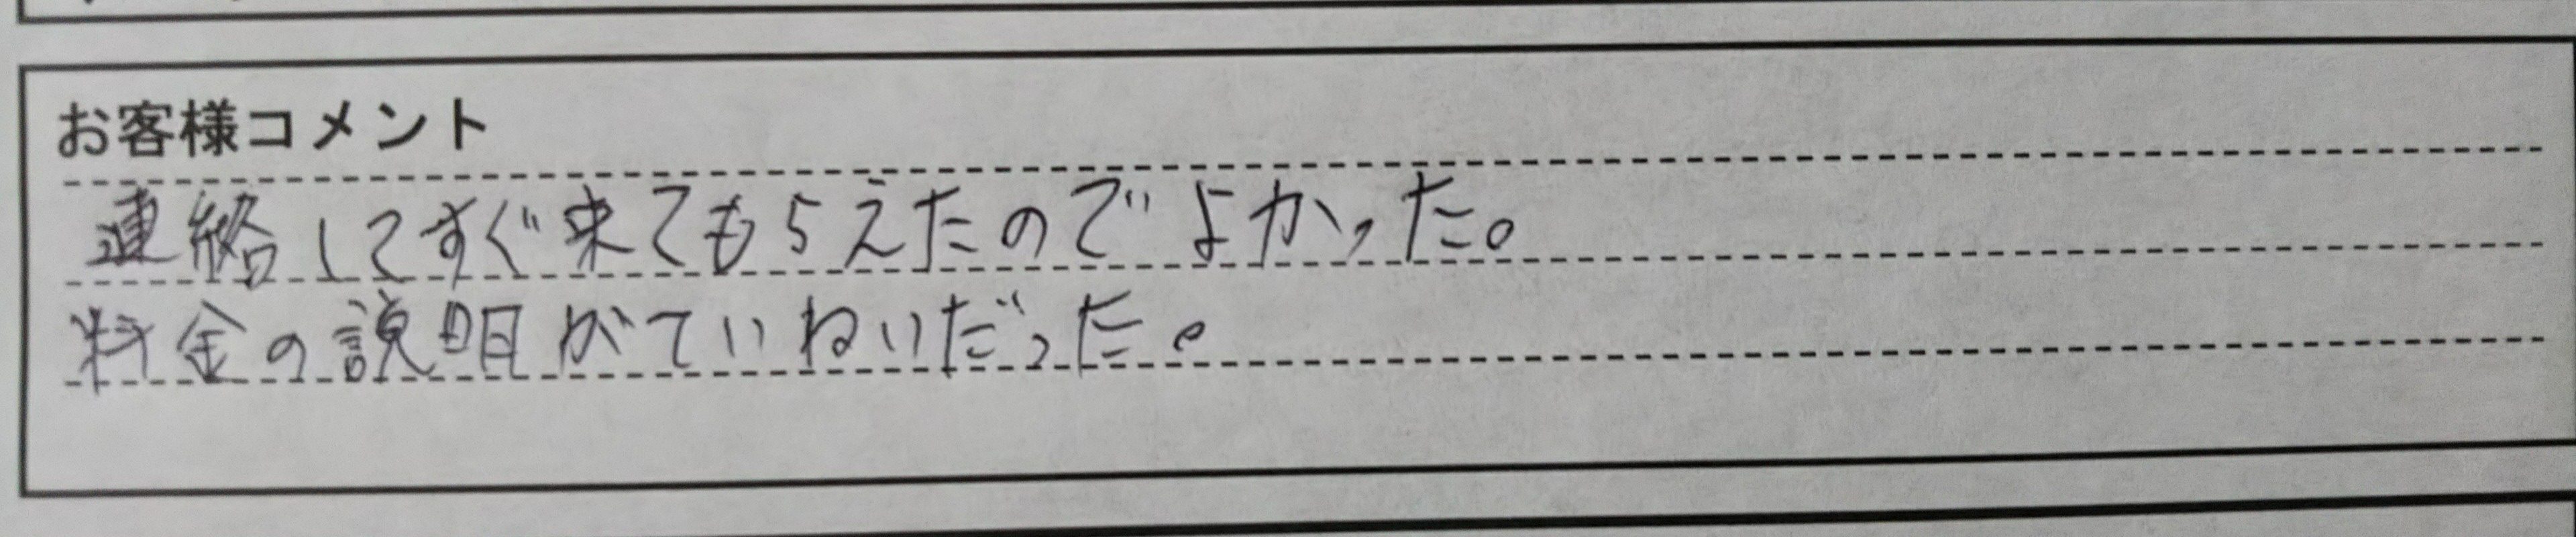 お客様コメント
連絡してすぐ来てもらえたのでよかった。
料金の説明がていねいだった。